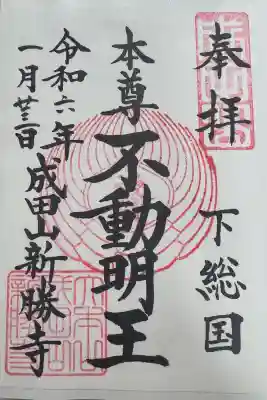 奉拝
下総国
本尊 不動明王
令和六年
一月廿三日
成田山新勝寺